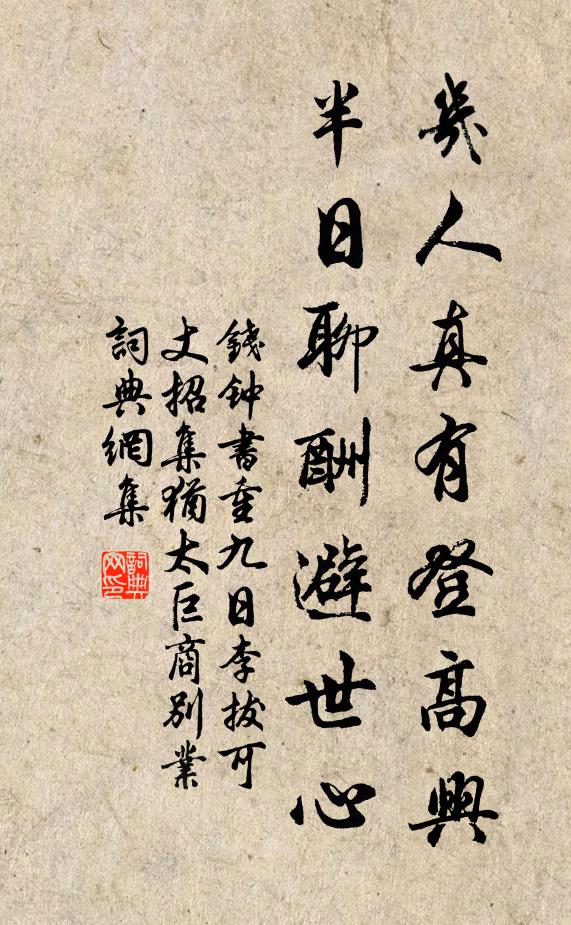 幾人真有登高興
半日聊酬避世心
錢钟書重九日李拔可
丈招集猶太巨商别業
詞典網集
詞典网印